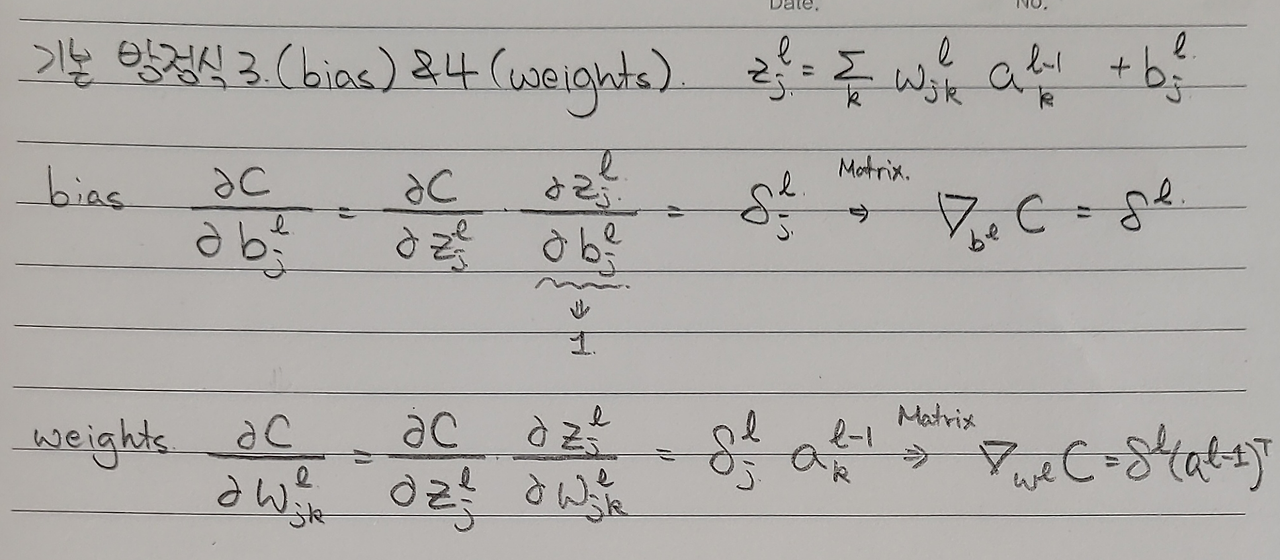 Date. No.
기본 방정식 3. (bias) & 4 (weights). z_j^l = Σ_k w_{jk}^l a_k^{l-1} + b_j^l.
bias ∂C/∂b_j^l = ∂C/∂z_j^l · ∂z_j^l/∂b_j^l = δ_j^l. Matrix. ⇒ ∇_{b^l} C = δ^l.
⇓
1.
weights. ∂C/∂w_{jk}^l = ∂C/∂z_j^l · ∂z_j^l/∂w_{jk}^l = δ_j^l a_k^{l-1} Matrix ⇒ ∇_{w^l} C = δ^l(a^{l-1})^T